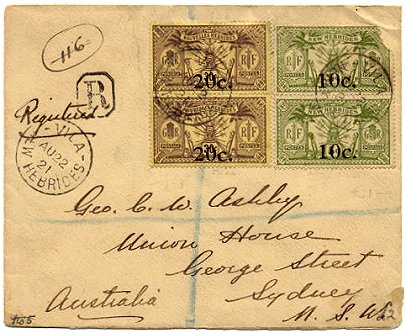 116
R
Registered
VILA
AU 22
21
NEW HEBRIDES
NOUVELLES HEBRIDES
RF
POSTES
20c.
NOUVELLES HEBRIDES
RF
POSTES
20c.
NEW HEBRIDES
RF
POSTAGE
10c.
NEW HEBRIDES
RF
POSTAGE
10c.
VILA
Geo. C. W. Ashby
Union House
George Street
Sydney
N. S. W.
Australia